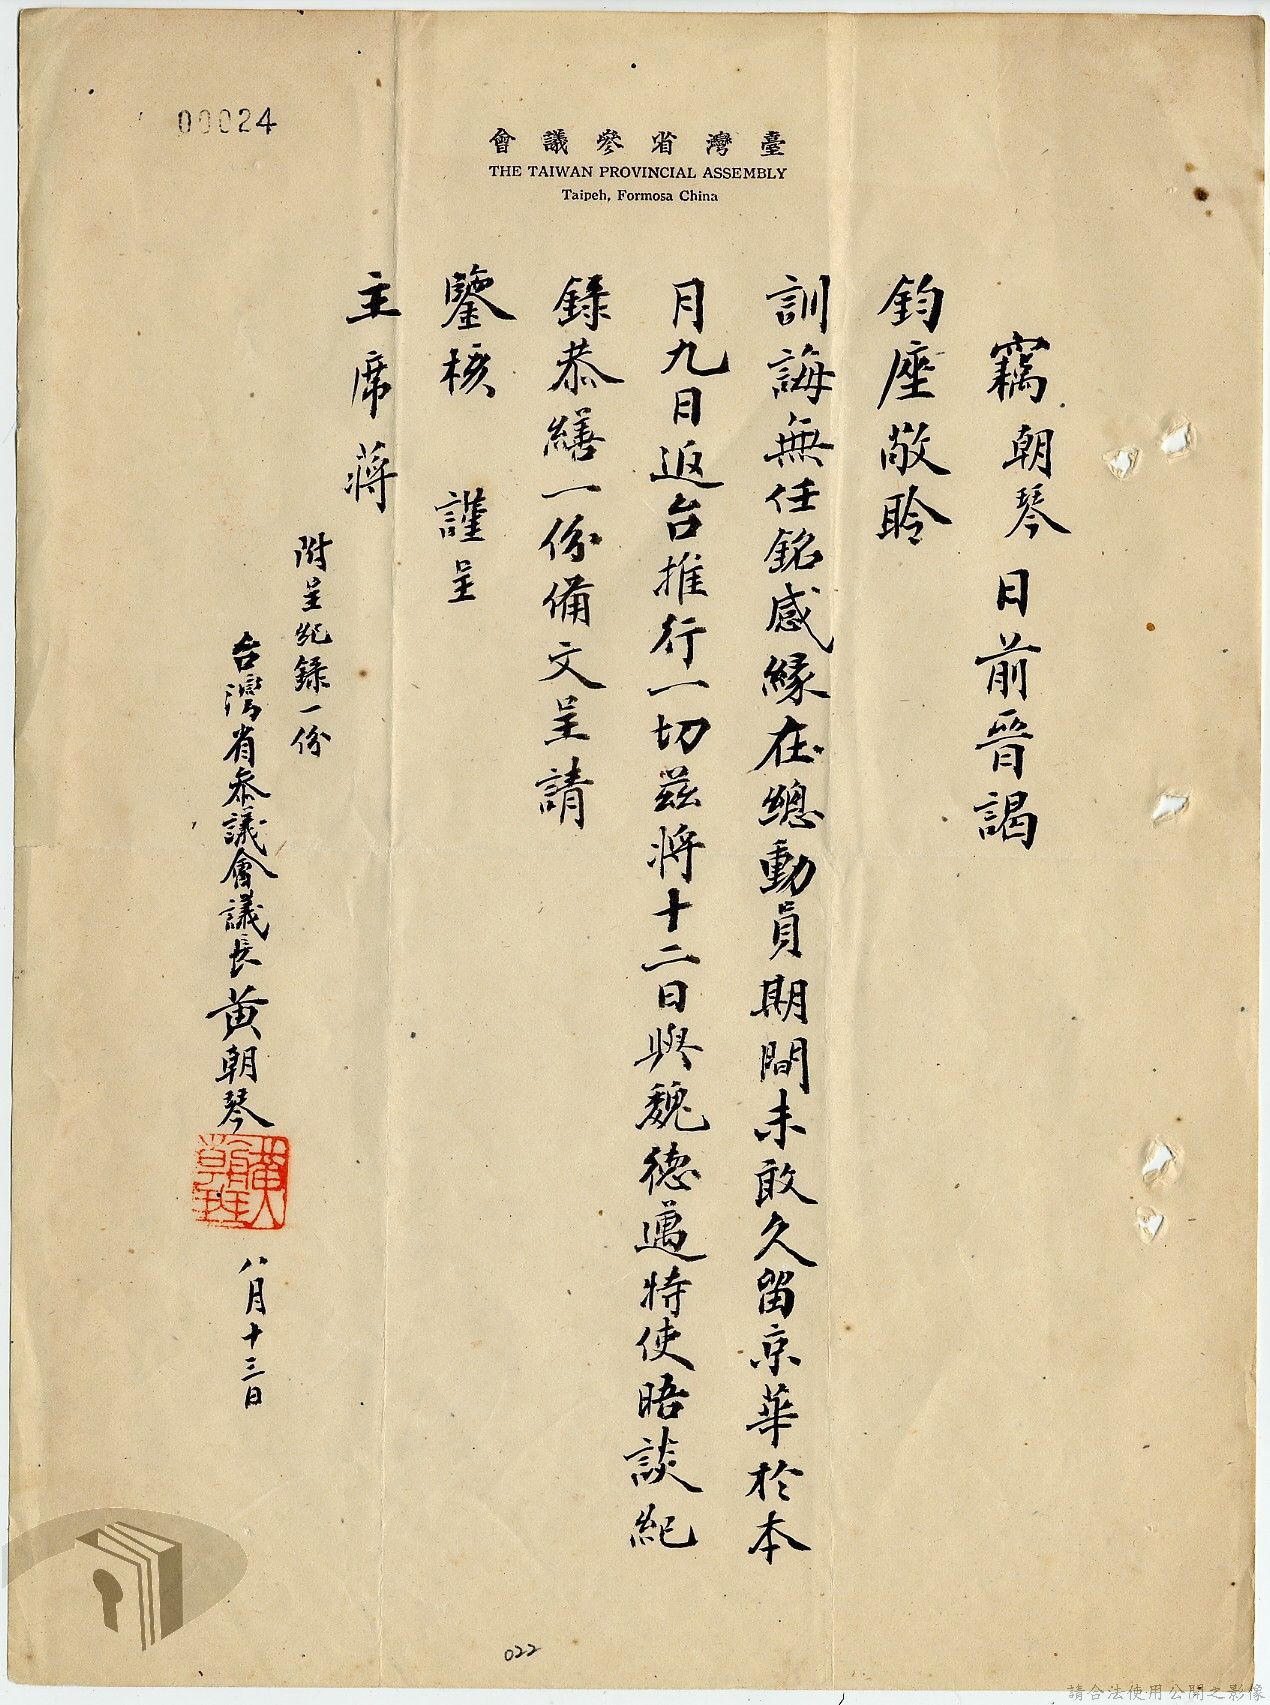 00024
臺灣省參議會
THE TAIWAN PROVINCIAL ASSEMBLY
Taipeh, Formosa China
竊朝琴日前晉謁
鈞座敬聆
訓誨無任銘感緣在總動員期間未敢久留京華於本
月九日返台推行一切茲將十二日與魏德邁特使晤談紀
錄恭繕一份備文呈請
鑒核 謹呈
主席蔣
附呈紀錄一份
台灣省參議會議長黃朝琴
黃朝琴
八月十三日
022
請合法使用公開之影像